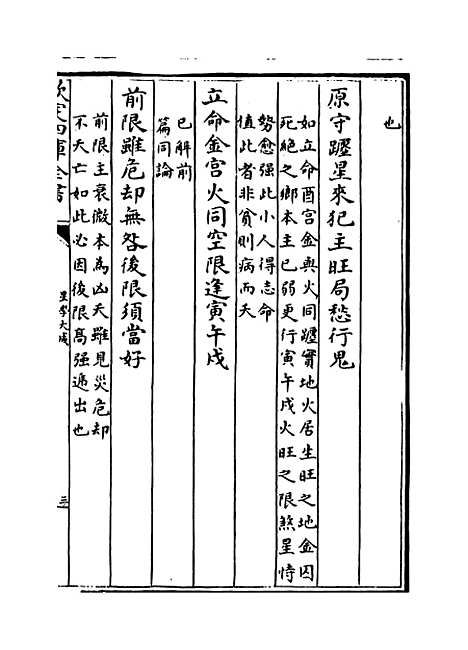 也
原守躔星來犯主旺局愁行鬼
如立命酉宫金與火同躔實地火居生旺之地金囚
死絶之鄉本主已弱更行寅午戌火旺之限煞星恃
勢愈强此小人得志命
值此者非貧則病而夭
立命金宫火同空限逢寅午戌
已解前
篇同論
前限雖危却無咎後限須當好
前限主衰微本為凶夭雖見災危却
不夭亡如此必因後限髙强遞出也
欽定四庫全書
星學大成
三